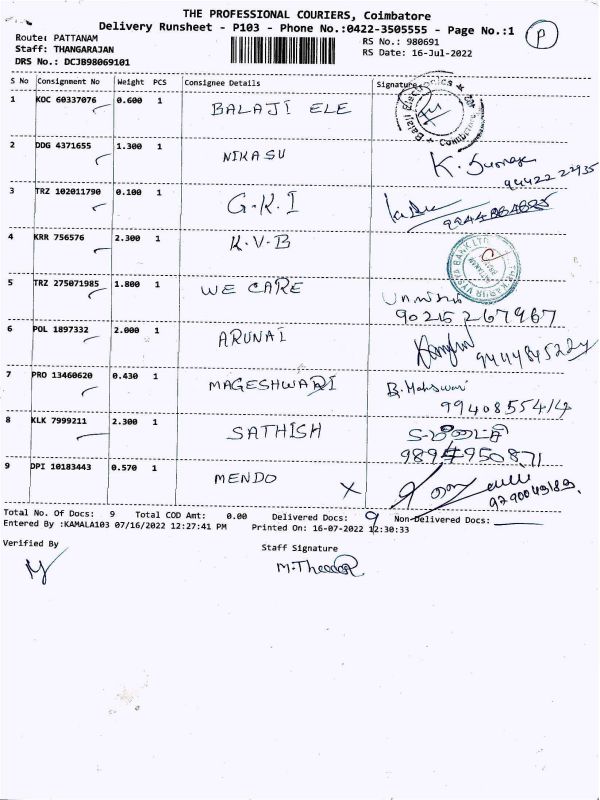 THE PROFESSIONAL COURIERS, Coimbatore
Delivery Runsheet - P103 - Phone No.:0422-3505555 - Page No.:1 P
Route: PATTANAM RS No.: 980691
Staff: THANGARAJAN RS Date: 16-Jul-2022
DRS No.: DCJB98069101
S No Consignment No Weight PCS Consignee Details Signature
1 KOC 60337076 0.600 1 BALAJI ELE
Balaji Electronics
2 DDG 4371655 1.300 1 NIKASU
94422 22935
3 TRZ 102011790 0.100 1 G.K.I
4 KRR 756576 2.300 1 K.V.B
5 TRZ 275071985 1.800 1 WE CARE
90215 267967
6 POL 1897332 2.000 1 ARUNAI
7 PRO 13460620 0.430 1 MAGESHWARI
9940855414
8 KLK 7999211 2.300 1 SATHISH
9894950871
9 DPI 10183443 0.570 1 MENDO X
Total No. Of Docs: 9 Total COD Amt: 0.00 Delivered Docs: 9 Non-Delivered Docs:
Entered By :KAMALA103 07/16/2022 12:27:41 PM Printed On: 16-07-2022 12:30:33
Verified By Staff Signature